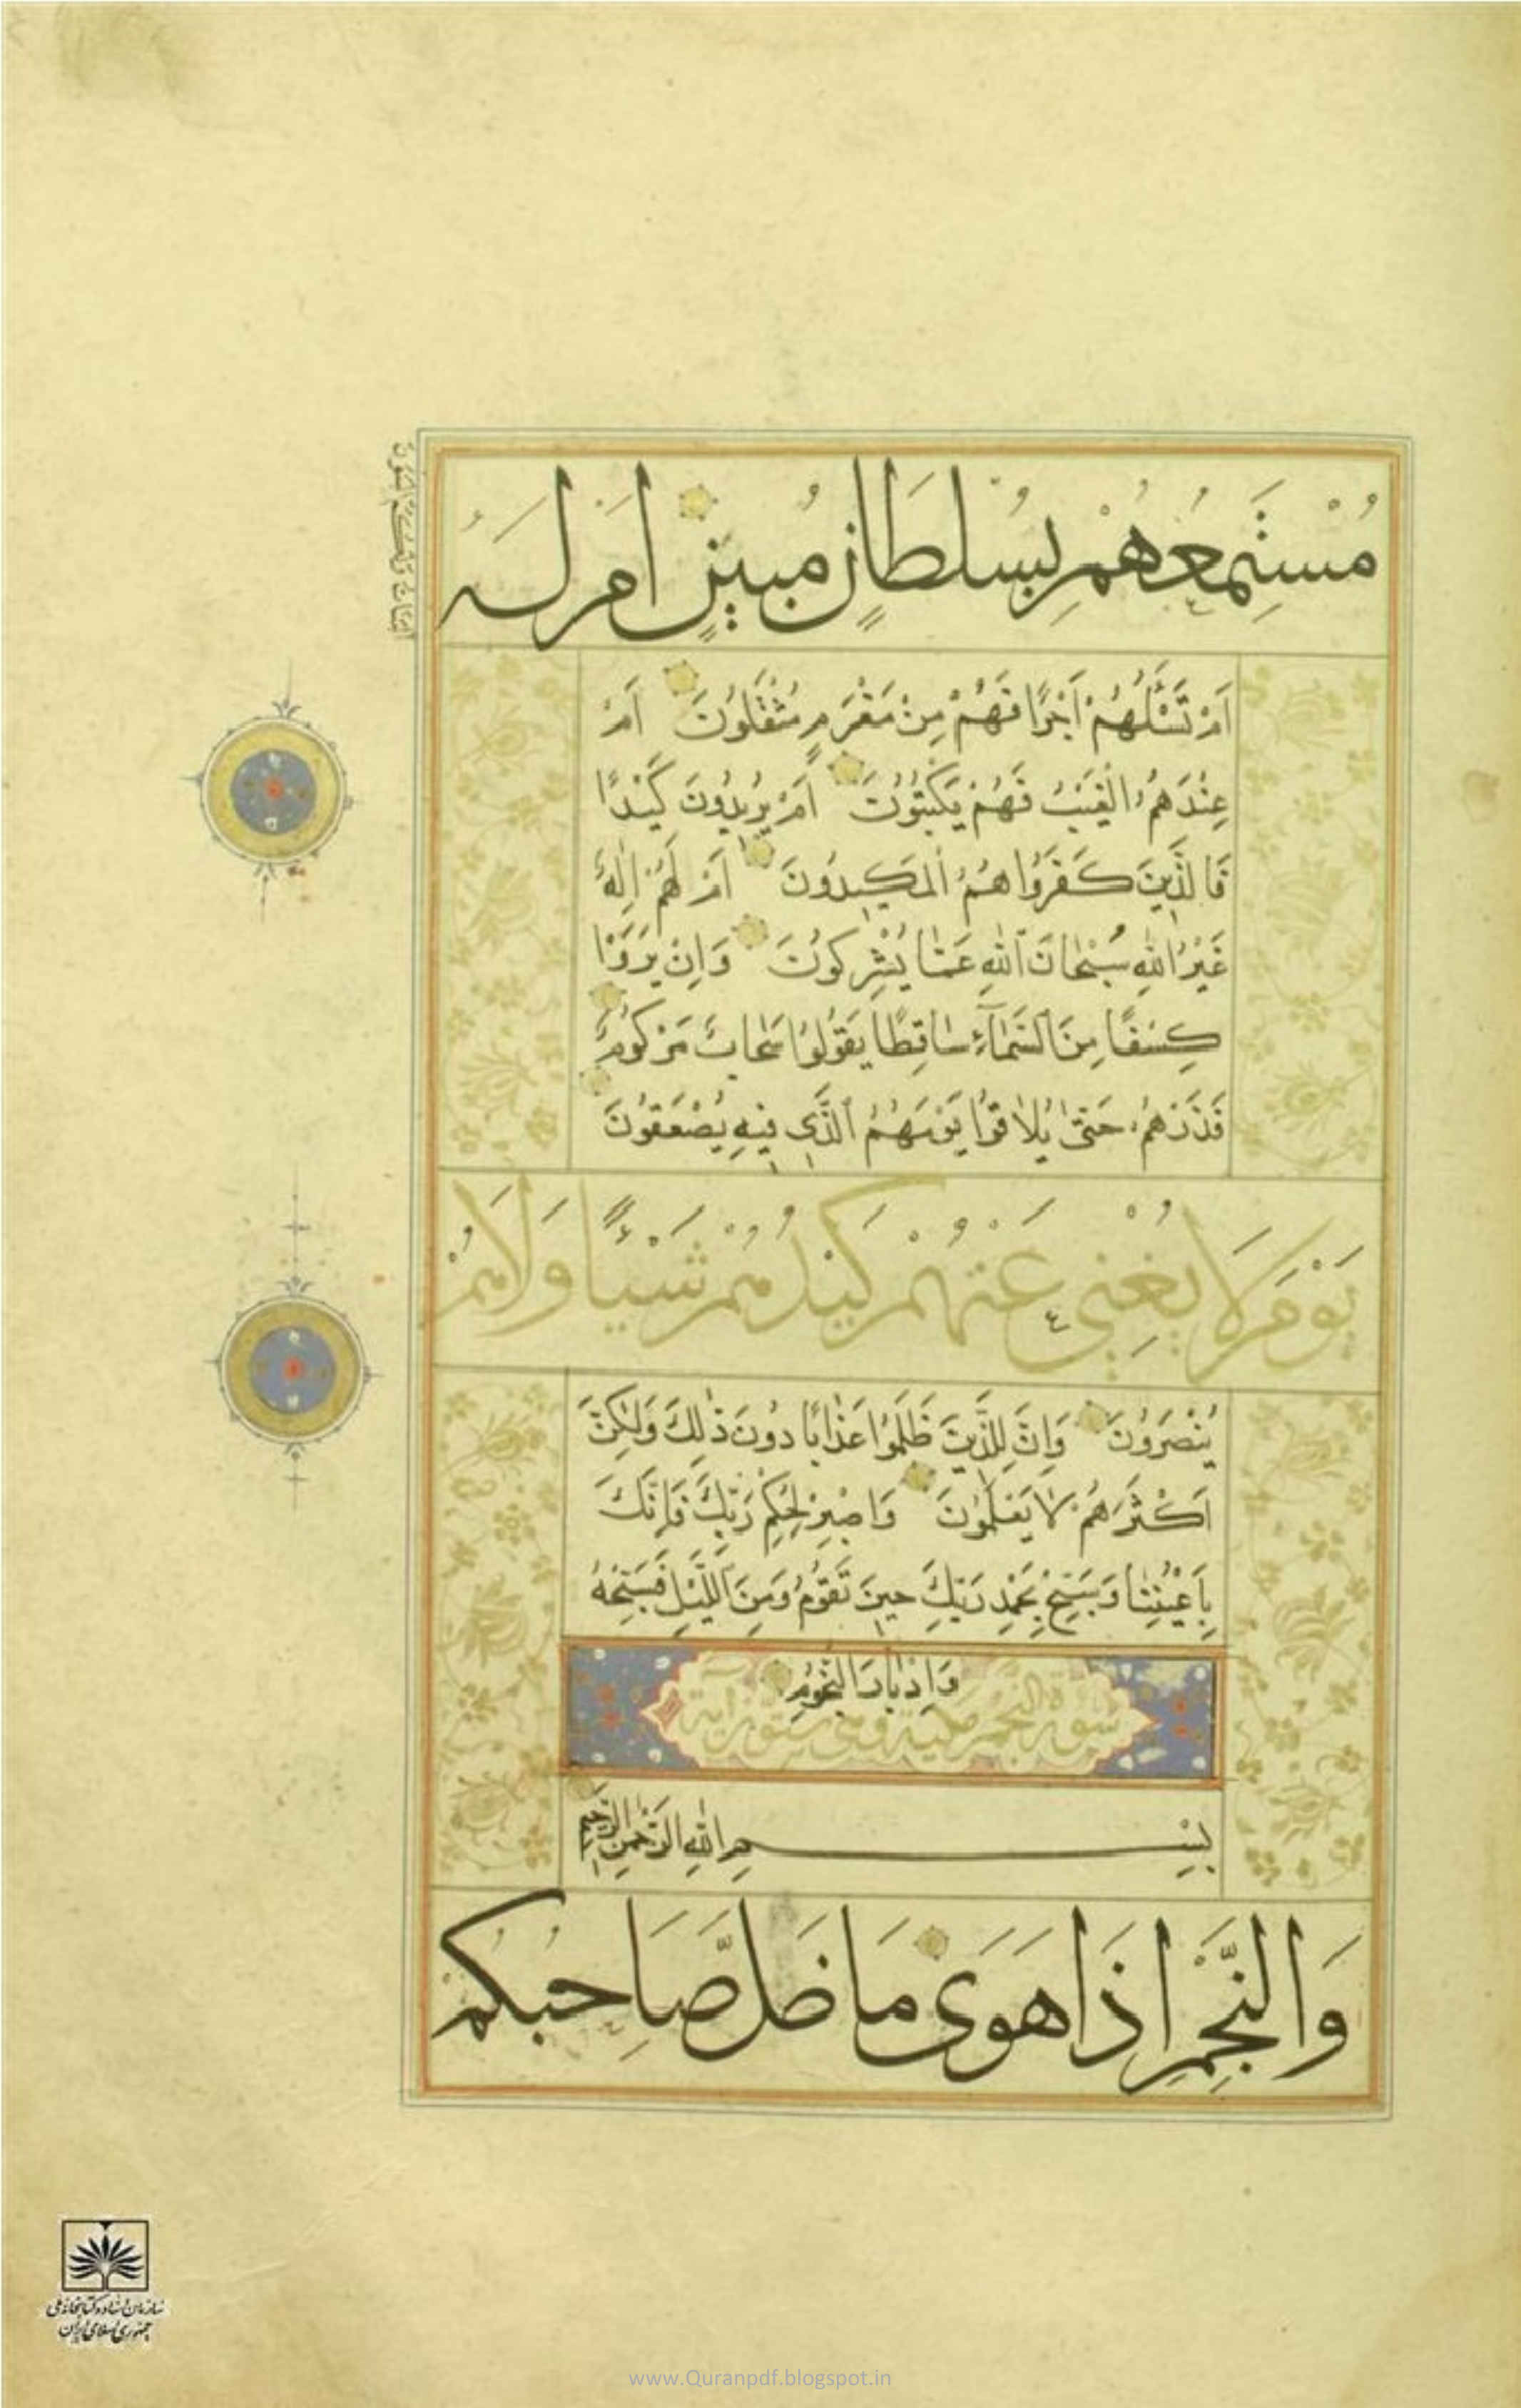 مُسْتَمِعُهُمْ بِسُلْطَانٍ مُبِينٍ اَمْ لَهُ
الْبَنَاتُ وَلَكُمُ الْبَنُونَ
اَمْ تَسْئَلُهُمْ اَجْرًا فَهُمْ مِنْ مَغْرَمٍ مُثْقَلُونَ اَمْ
عِنْدَهُمُ الْغَيْبُ فَهُمْ يَكْتُبُونَ اَمْ يُرِيدُونَ كَيْدًا
فَالَّذِينَ كَفَرُوا هُمُ الْمَكِيدُونَ اَمْ لَهُمْ اِلٰهٌ
غَيْرُ اللّٰهِ سُبْحَانَ اللّٰهِ عَمَّا يُشْرِكُونَ وَاِنْ يَرَوْا
كِسْفًا مِنَ السَّمَآءِ سَاقِطًا يَقُولُوا سَحَابٌ مَرْكُومٌ
فَذَرْهُمْ حَتّٰى يُلَاقُوا يَوْمَهُمُ الَّذِى فِيهِ يُصْعَقُونَ
يَوْمَ لَا يُغْنِي عَنْهُمْ كَيْدُهُمْ شَيْئًا وَلَا هُمْ
يُنْصَرُونَ وَاِنَّ لِلَّذِينَ ظَلَمُوا عَذَابًا دُونَ ذٰلِكَ وَلٰكِنَّ
اَكْثَرَهُمْ لَا يَعْلَمُونَ وَاصْبِرْ لِحُكْمِ رَبِّكَ فَاِنَّكَ
بِاَعْيُنِنَا وَسَبِّحْ بِحَمْدِ رَبِّكَ حِينَ تَقُومُ وَمِنَ اللَّيْلِ فَسَبِّحْهُ
وَاِدْبَارَ النُّجُومِ
سورة النجم مكية وهي ستون آية
بِسْمِ اللّٰهِ الرَّحْمٰنِ الرَّحِيمِ
وَالنَّجْمِ اِذَا هَوَى مَا ضَلَّ صَاحِبُكُمْ
سازمان اسناد و کتابخانه ملی
جمهوری اسلامی ایران
www.Quranpdf.blogspot.in